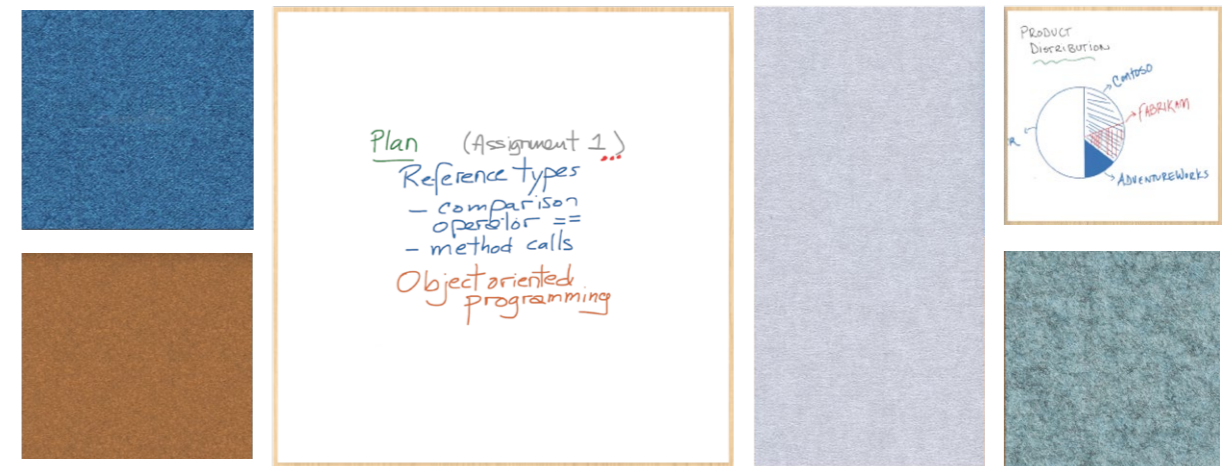 Plan (Assignment 1)
Reference types
- comparison
operator ==
- method calls
Object oriented
programming
PRODUCT
DISTRIBUTION
CONTOSO
FABRIKAM
ADVENTUREWORKS